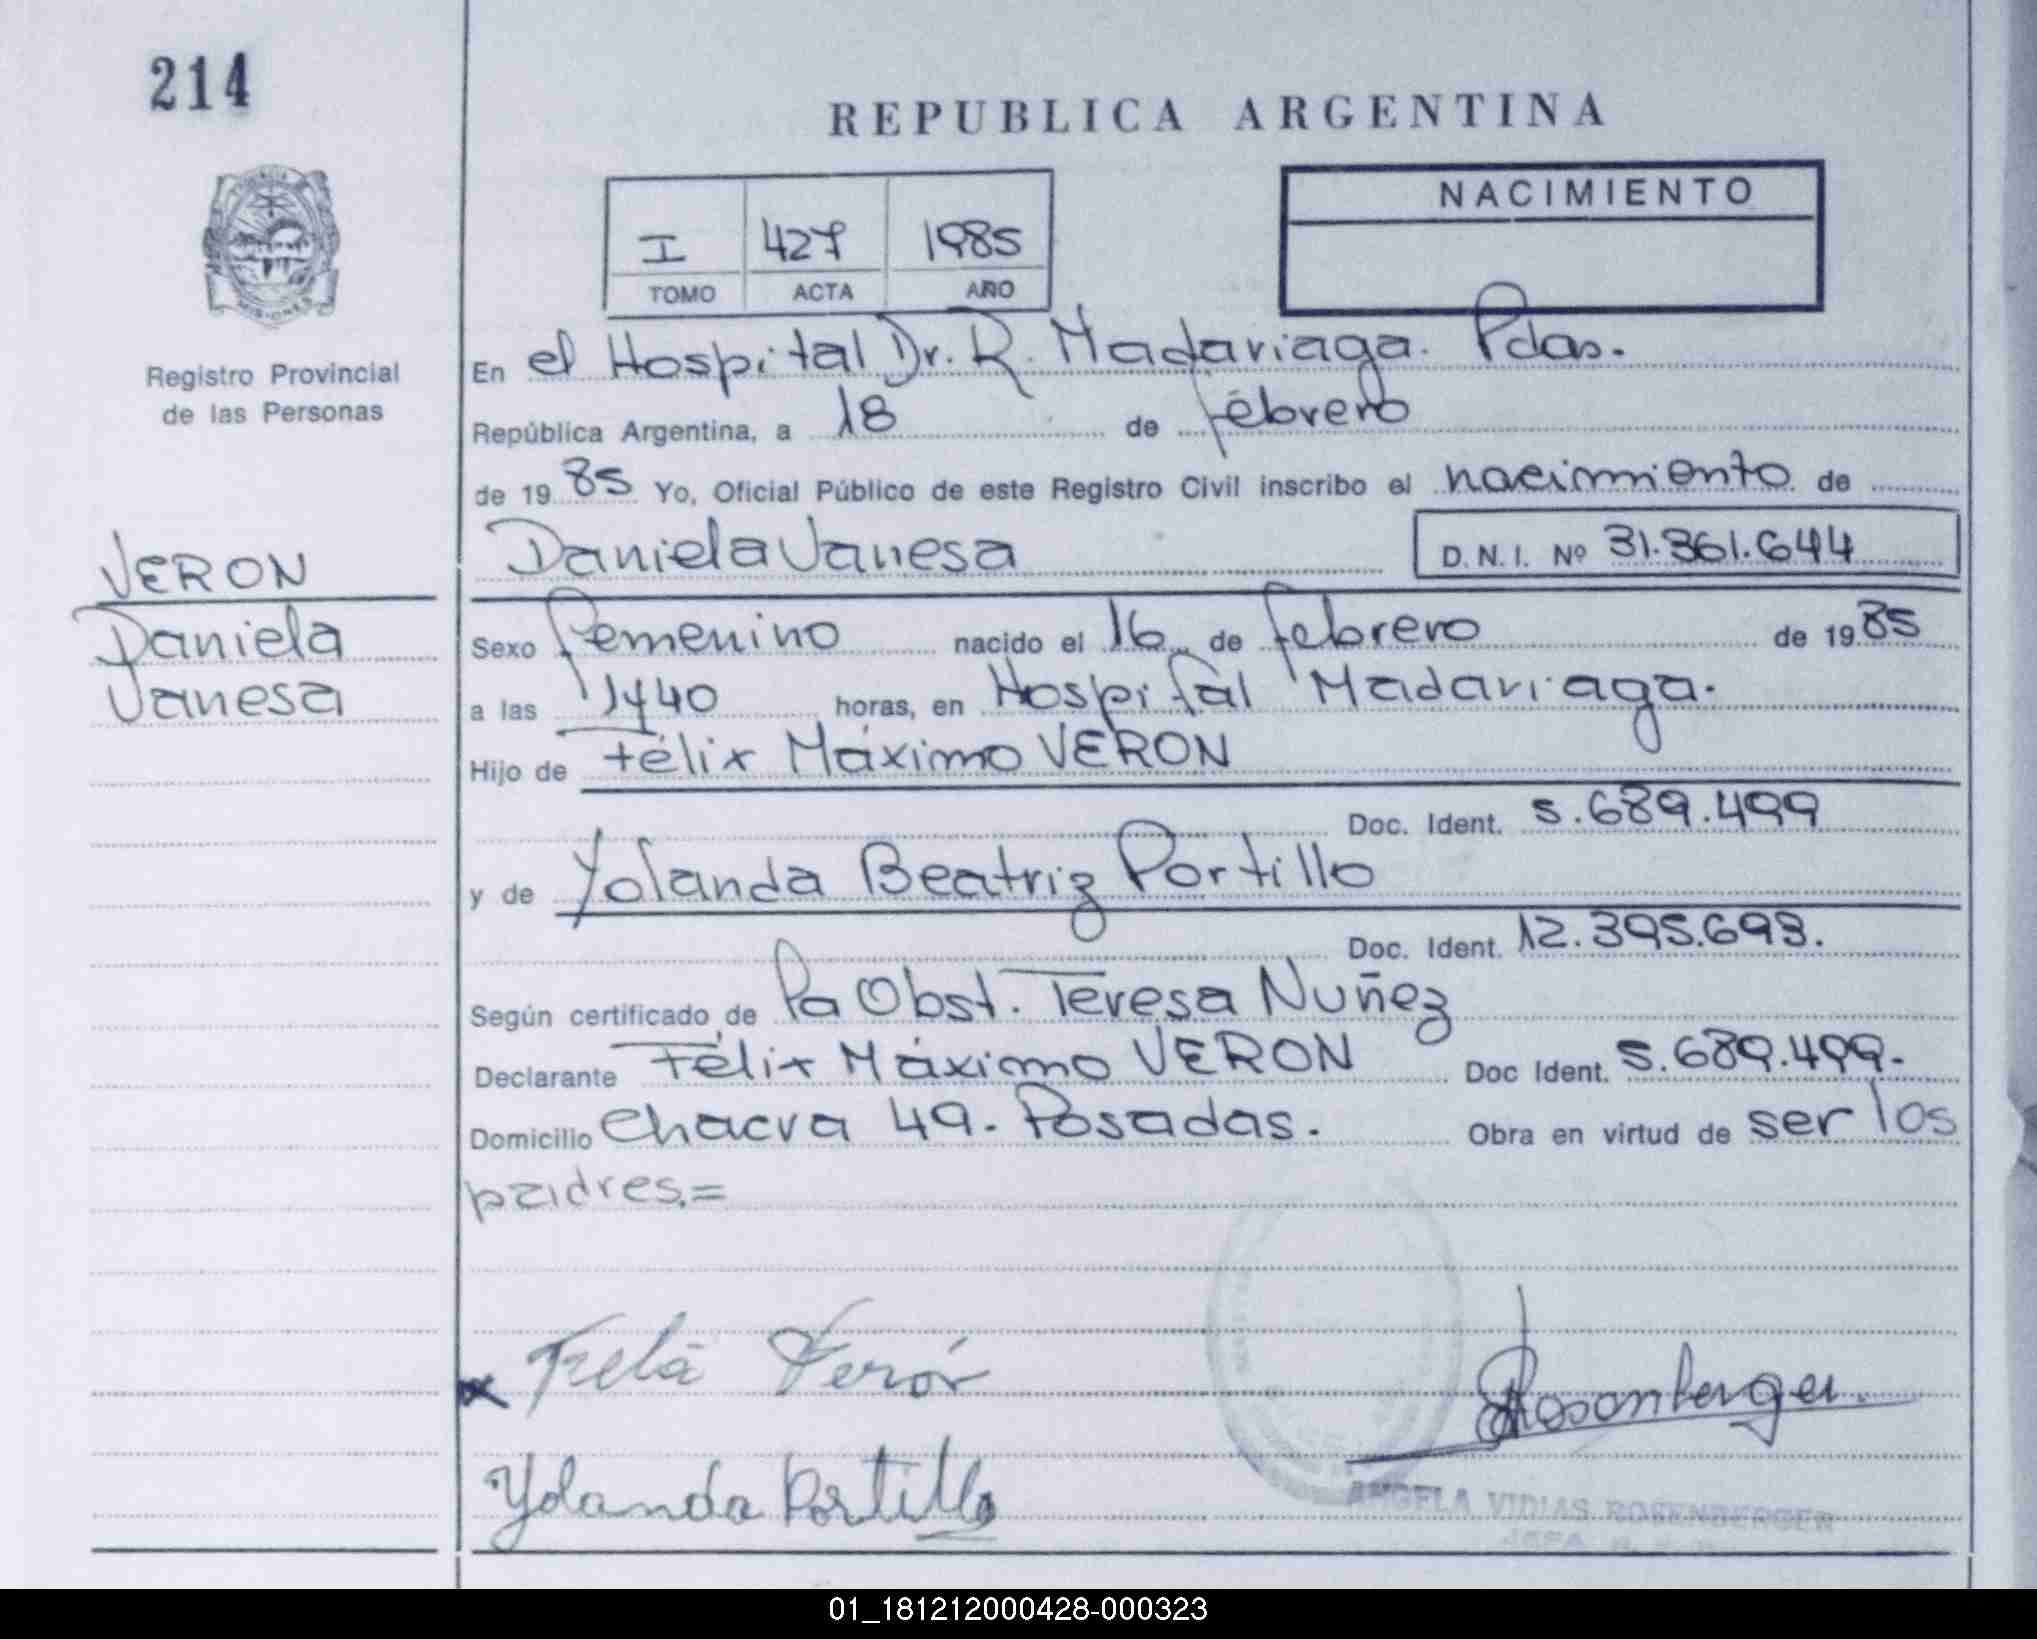 214
REPUBLICA ARGENTINA
NACIMIENTO
I 427 1985
TOMO ACTA AÑO
Registro Provincial
de las Personas
En el Hospital Dr. R. Madariaga. Pdas.
República Argentina, a 18 de febrero
de 1985 Yo, Oficial Público de este Registro Civil inscribo el nacimiento de
Daniela Vanesa D.N.I. Nº 31.361.644
VERON
Daniela
Vanesa
Sexo femenino nacido el 16 de febrero de 1985
a las horas, en Hospital Madariaga.
Hijo de Félix Máximo VERON
Doc. Ident. 5.689.499
y de Yolanda Beatriz Portillo
Doc. Ident. 12.395.693.
Según certificado de la Obst. Teresa Nuñez
Declarante Félix Máximo VERON Doc Ident. 5.689.499.
Domicilio Chacra 49. Posadas. Obra en virtud de ser los
padres.=
x Verón
Rosenberger
Yolanda Portillo
ANGELA VIDIAS ROSENBERGER
JEFA
01_181212000428-000323